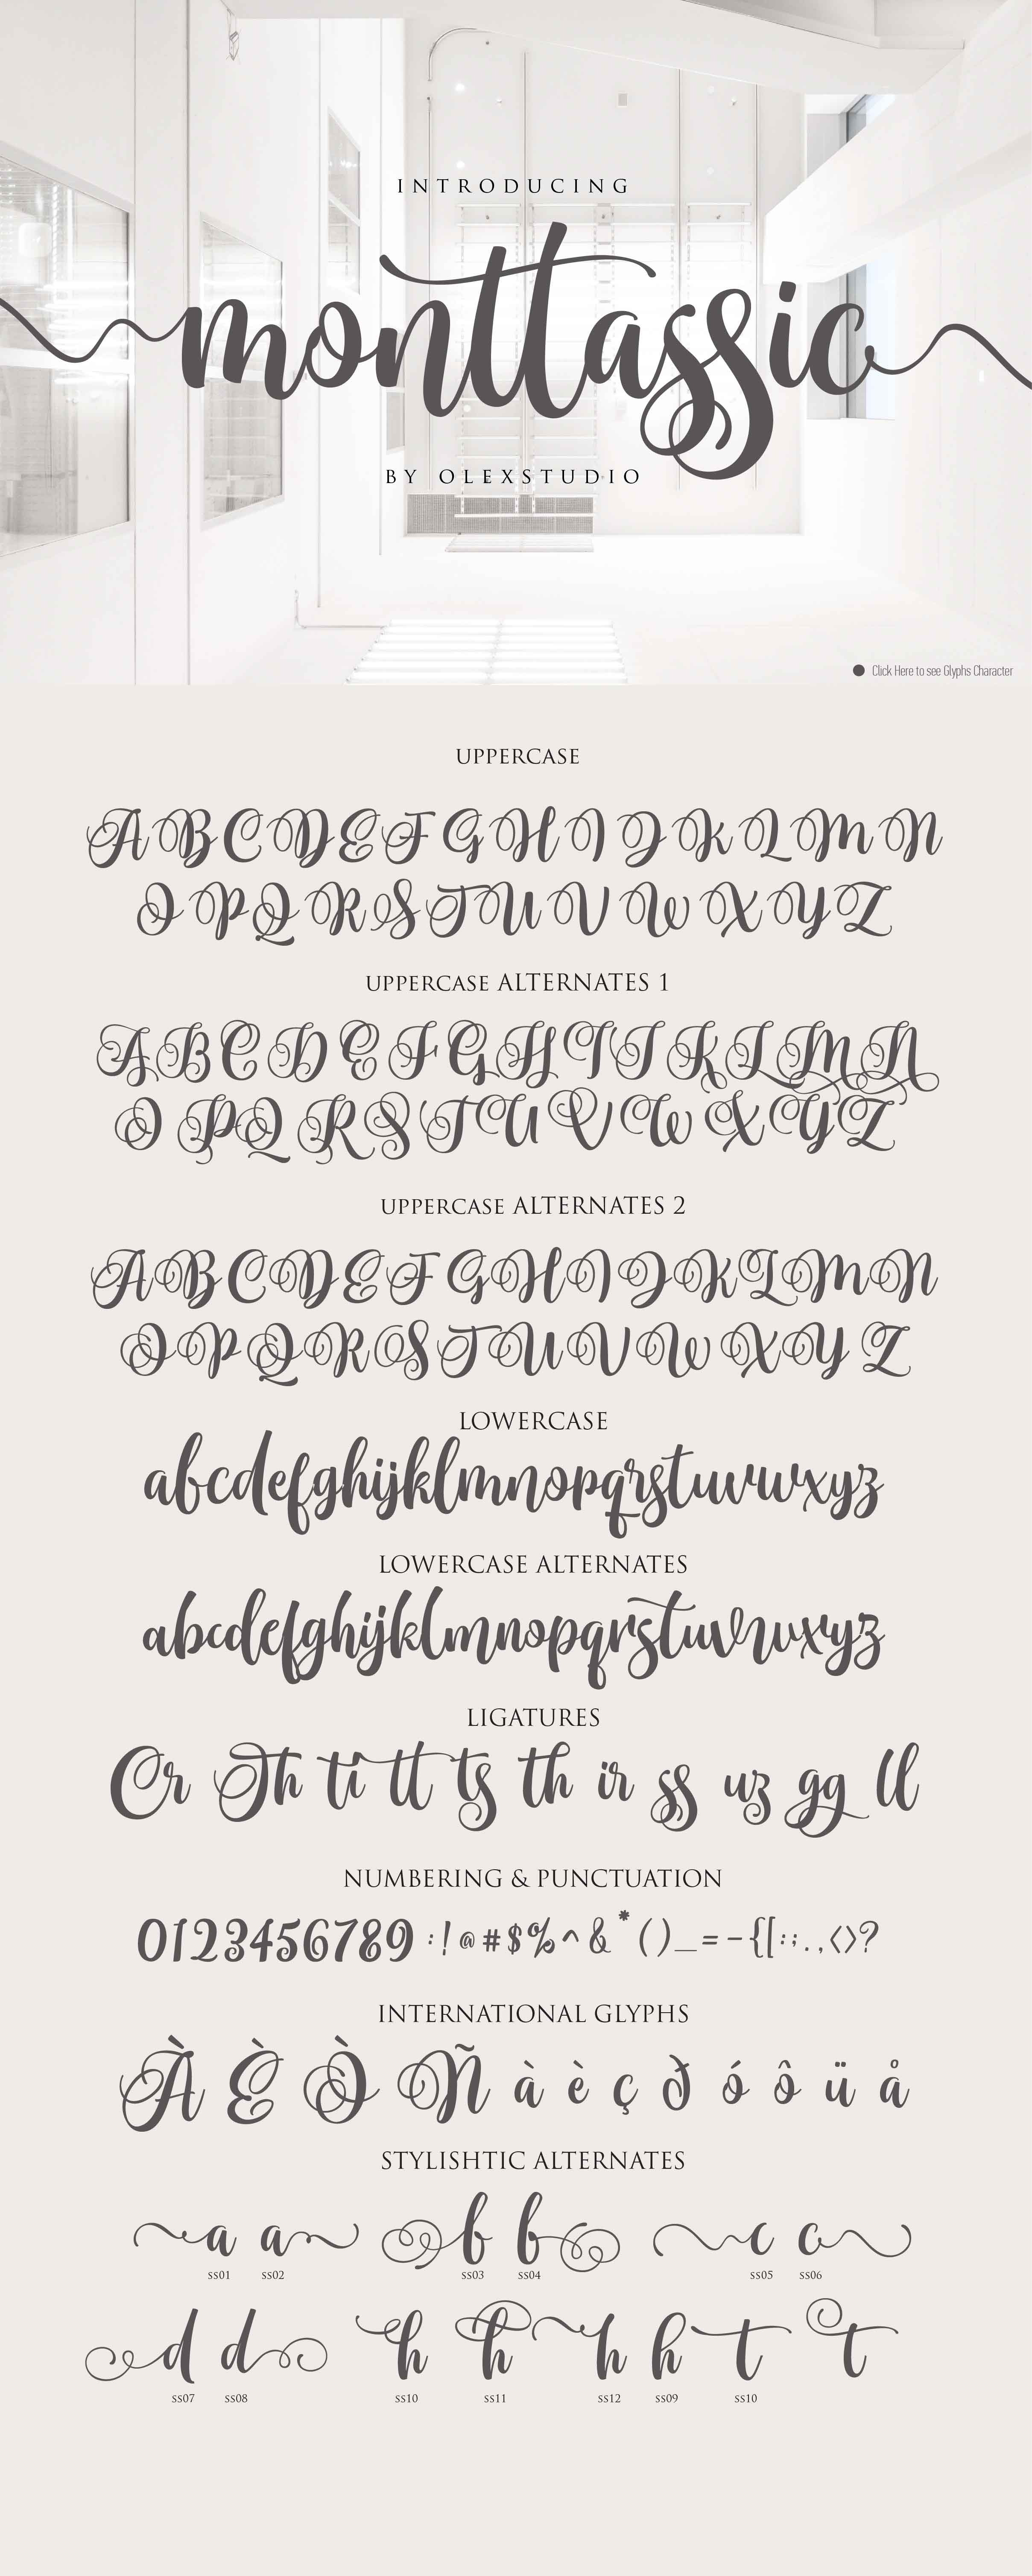 INTRODUCING
monttassic
BY OLEXSTUDIO
Click Here to see Glyphs Character
UPPERCASE
A B C D E F G H I J K L M N
O P Q R S T U V W X Y Z
UPPERCASE ALTERNATES 1
A B C D E F G H I J K L M N
O P Q R S T U V W X Y Z
UPPERCASE ALTERNATES 2
A B C D E F G H I J K L M N
O P Q R S T U V W X Y Z
LOWERCASE
abcdefghijklmnopqrstuvwxyz
LOWERCASE ALTERNATES
abcdefghijklmnopqrstuvwxyz
LIGATURES
Or Th ti tt ts th ir ss uz gg ll
NUMBERING & PUNCTUATION
0123456789 :!@#$%^&*()_=-{[:;.,<>?
INTERNATIONAL GLYPHS
À È Ò Ñ à è ç ð ó ô ü å
STYLISHTIC ALTERNATES
a a b b c c
ss01 ss02 ss03 ss04 ss05 ss06
d d h h h h t t
ss07 ss08 ss10 ss11 ss12 ss09 ss10